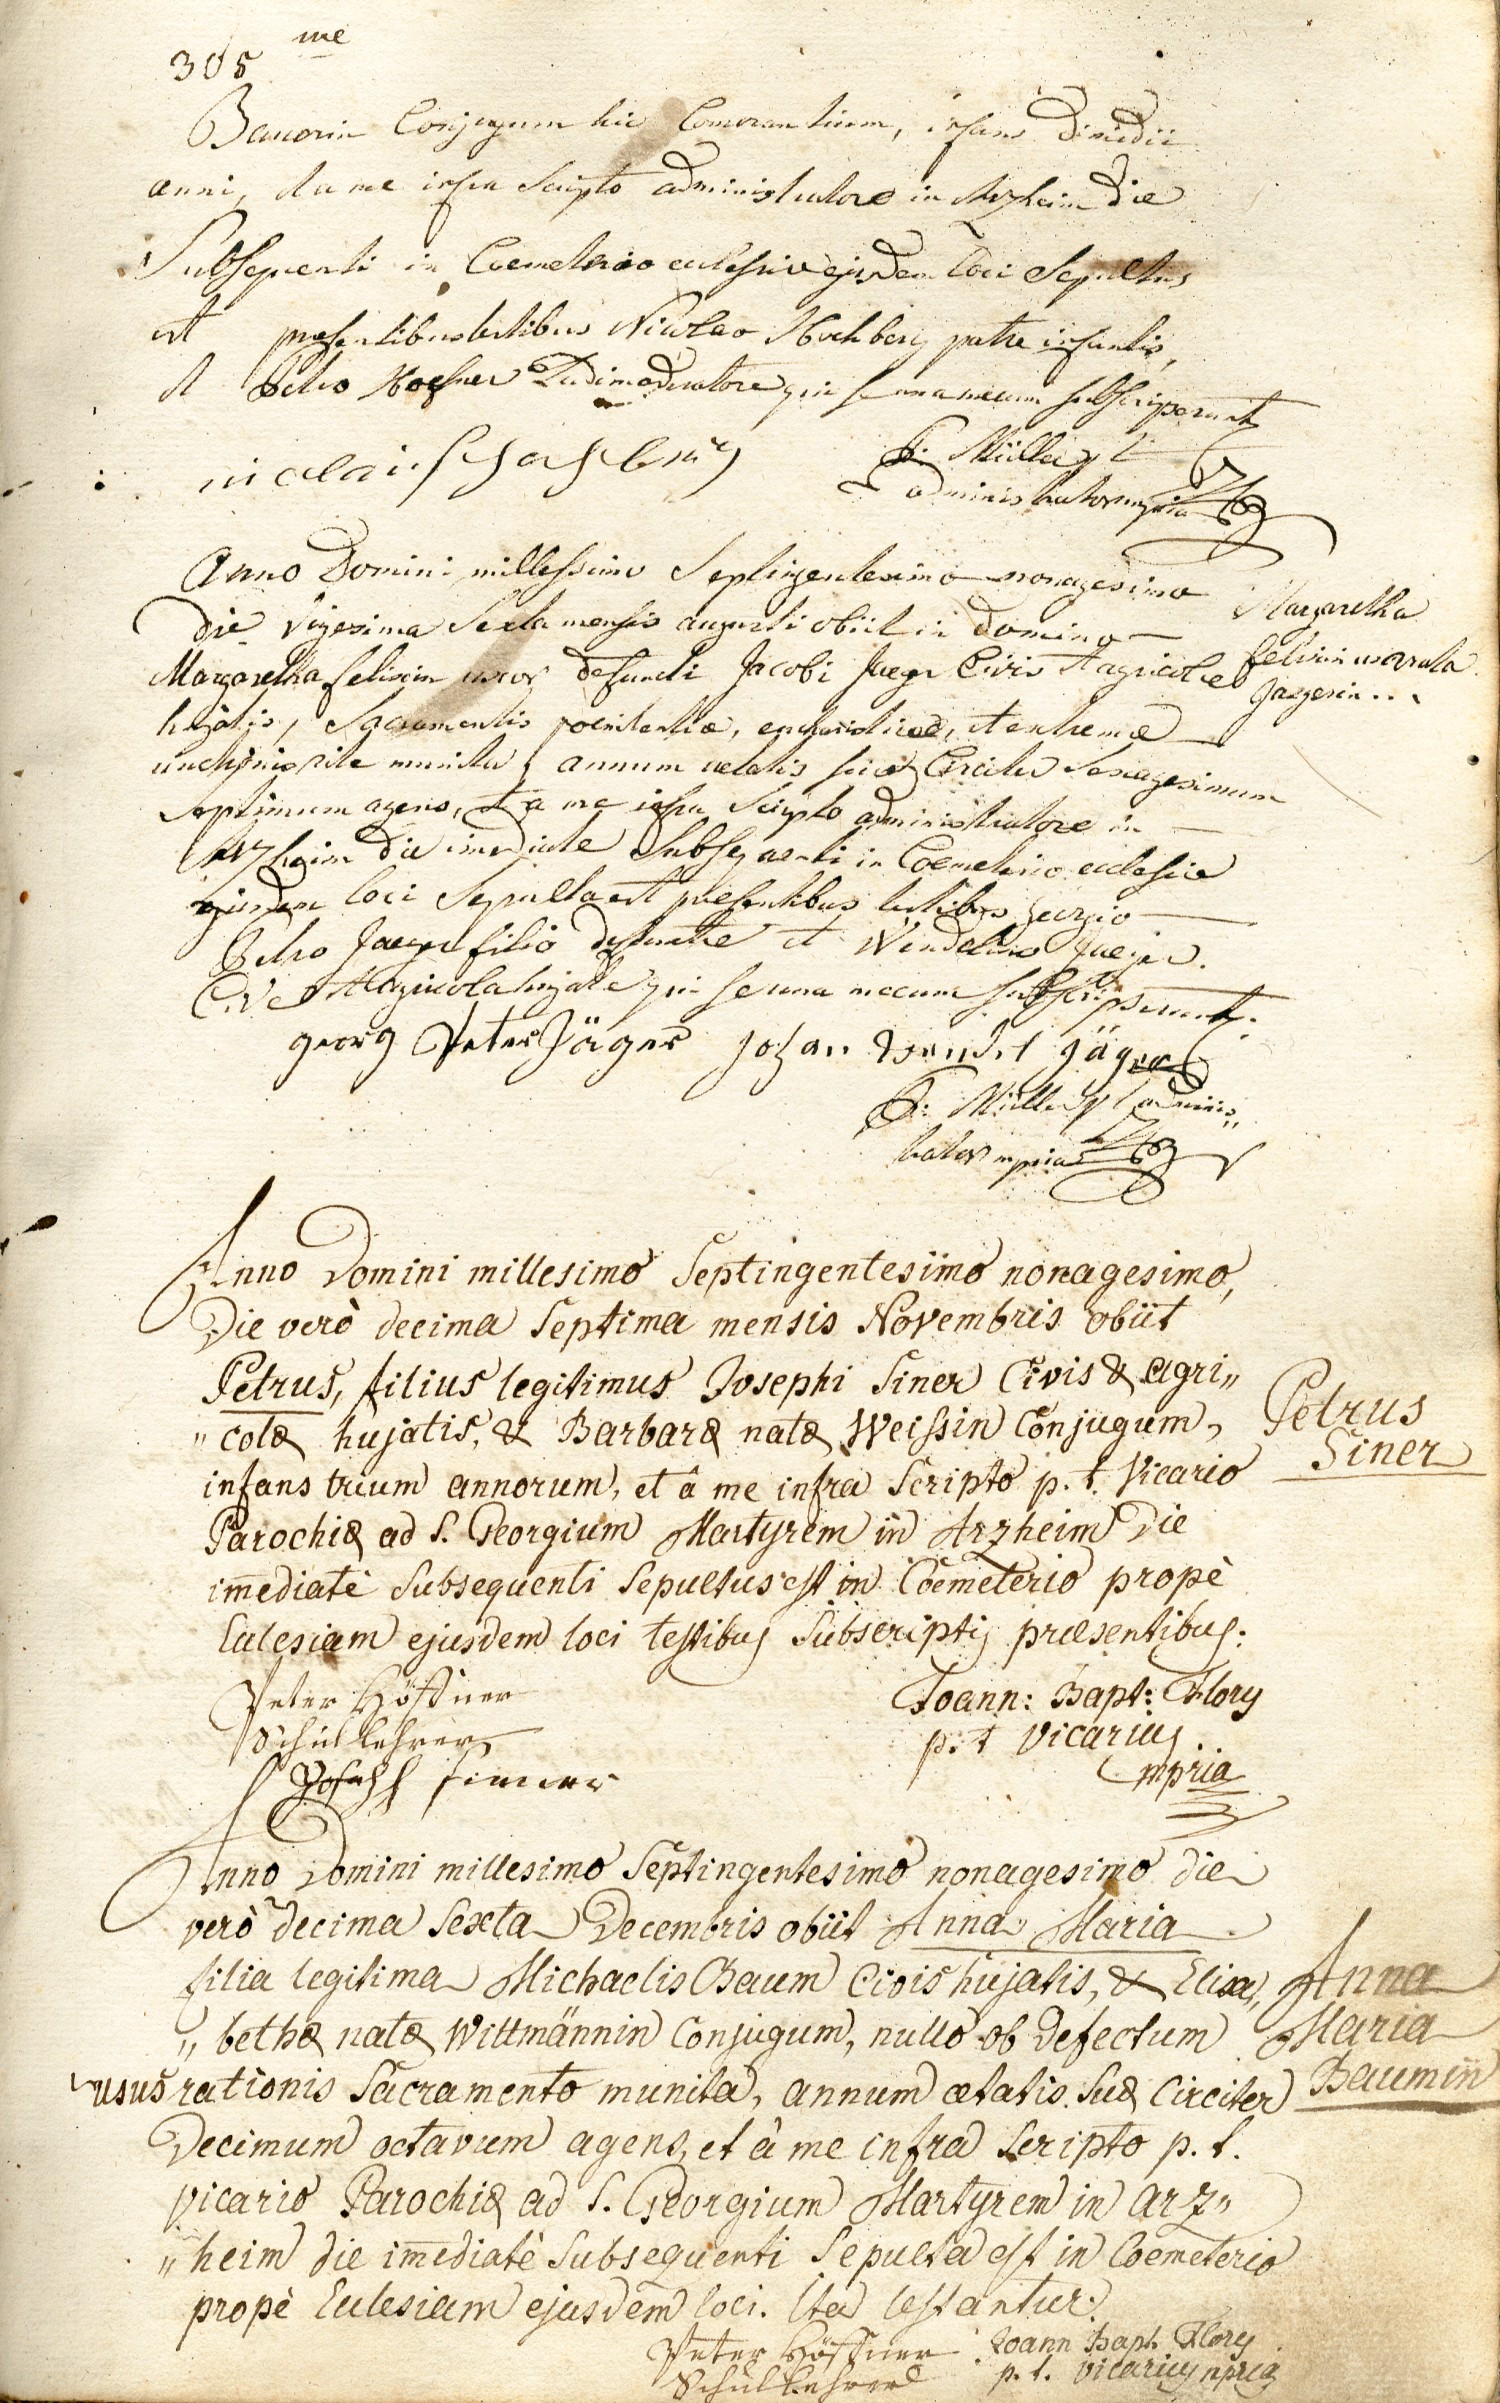 305 me
Bavarin Conjugum hic Comorantium, infans Dimidii
anni, et a me infra Scripto administratore in Arzheim Die
Subsequenti in Coemeterio ecclesiae ejusdem loci Sepultus
est praesentibus testibus Nicolao patre infantis,
et Petro Hoefner Ludimoderatore qui se una mecum subscripserunt
F: Müller
administrator mpria
Anno Domini millessimo Septingentesimo nonagesimo
Die Vigesima Sexta mensis augusti obiit in Domino
Margaretha felisin uxor defuncti Jacobi Jaeger Civis et agricolae
hujatis, Sacramentis poenitentiae, eucharistiae, et extremae
unctionis rite munita, annum aetatis suae Circiter Sexagesimum
Septimum agens, et a me infra Scripto administratore in
Arzheim die imediate Subsequenti in Coemeterio ecclesiae
ejusdem loci Sepulta est praesentibus testibus Georgio
Petro Jaeger filio defunctae et Wendelino Jaeger
Cive et Agricola hujate qui se una mecum subscripserunt.
Margaretha
felisin
Jaegerin..
georg Peter Jäger Johan Wendel Jäger
F: Müller adminis„
trator mpria
Anno Domini millesimo Septingentesimo nonagesimo,
Die verò decima Septima mensis Novembris obiit
Petrus, filius legitimus Josephi Siner Civis & Agri„
„colæ hujatis, & Barbaræ natæ Weissin Conjugum,
infans trium annorum, et â me infrà Scripto p. t. Vicario
Parochiæ ad S. Georgium Martyrem in Arzheim Die
imediatè Subsequenti Sepultus est in Coemeterio propè
Eclesiam ejusdem loci testibus Subscriptis præsentibus:
Petrus
Siner
Peter Höffner
Schullehrer
Joseph Sinner
Joann: Bapt: Flory
p. t Vicarius
mpria
Anno Domini millesimo Septingentesimo nonagesimo die
verò decima Sexta Decembris obiit Anna Maria
filia legitima Michaelis Baum Civis hujatis, & Elisa„
„bethæ natæ Wittmännin Conjugum, nullo ob Defectum
usus rationis Sacramento munita, annum ætatis Suæ Circiter
Decimum octavum agens, et à me infra Scripto p. t.
vicario Parochiæ ad S. Georgium Martyrem in Arz„
„heim die imediatè Subsequenti Sepulta est in Coemeterio
propè Eclesiam ejusdem loci. Ita testantur.
Anna
Maria
Baumin
Peter Höffner
Schullehrer
Joann Bapt. Flory
p. t. vicarius mpria